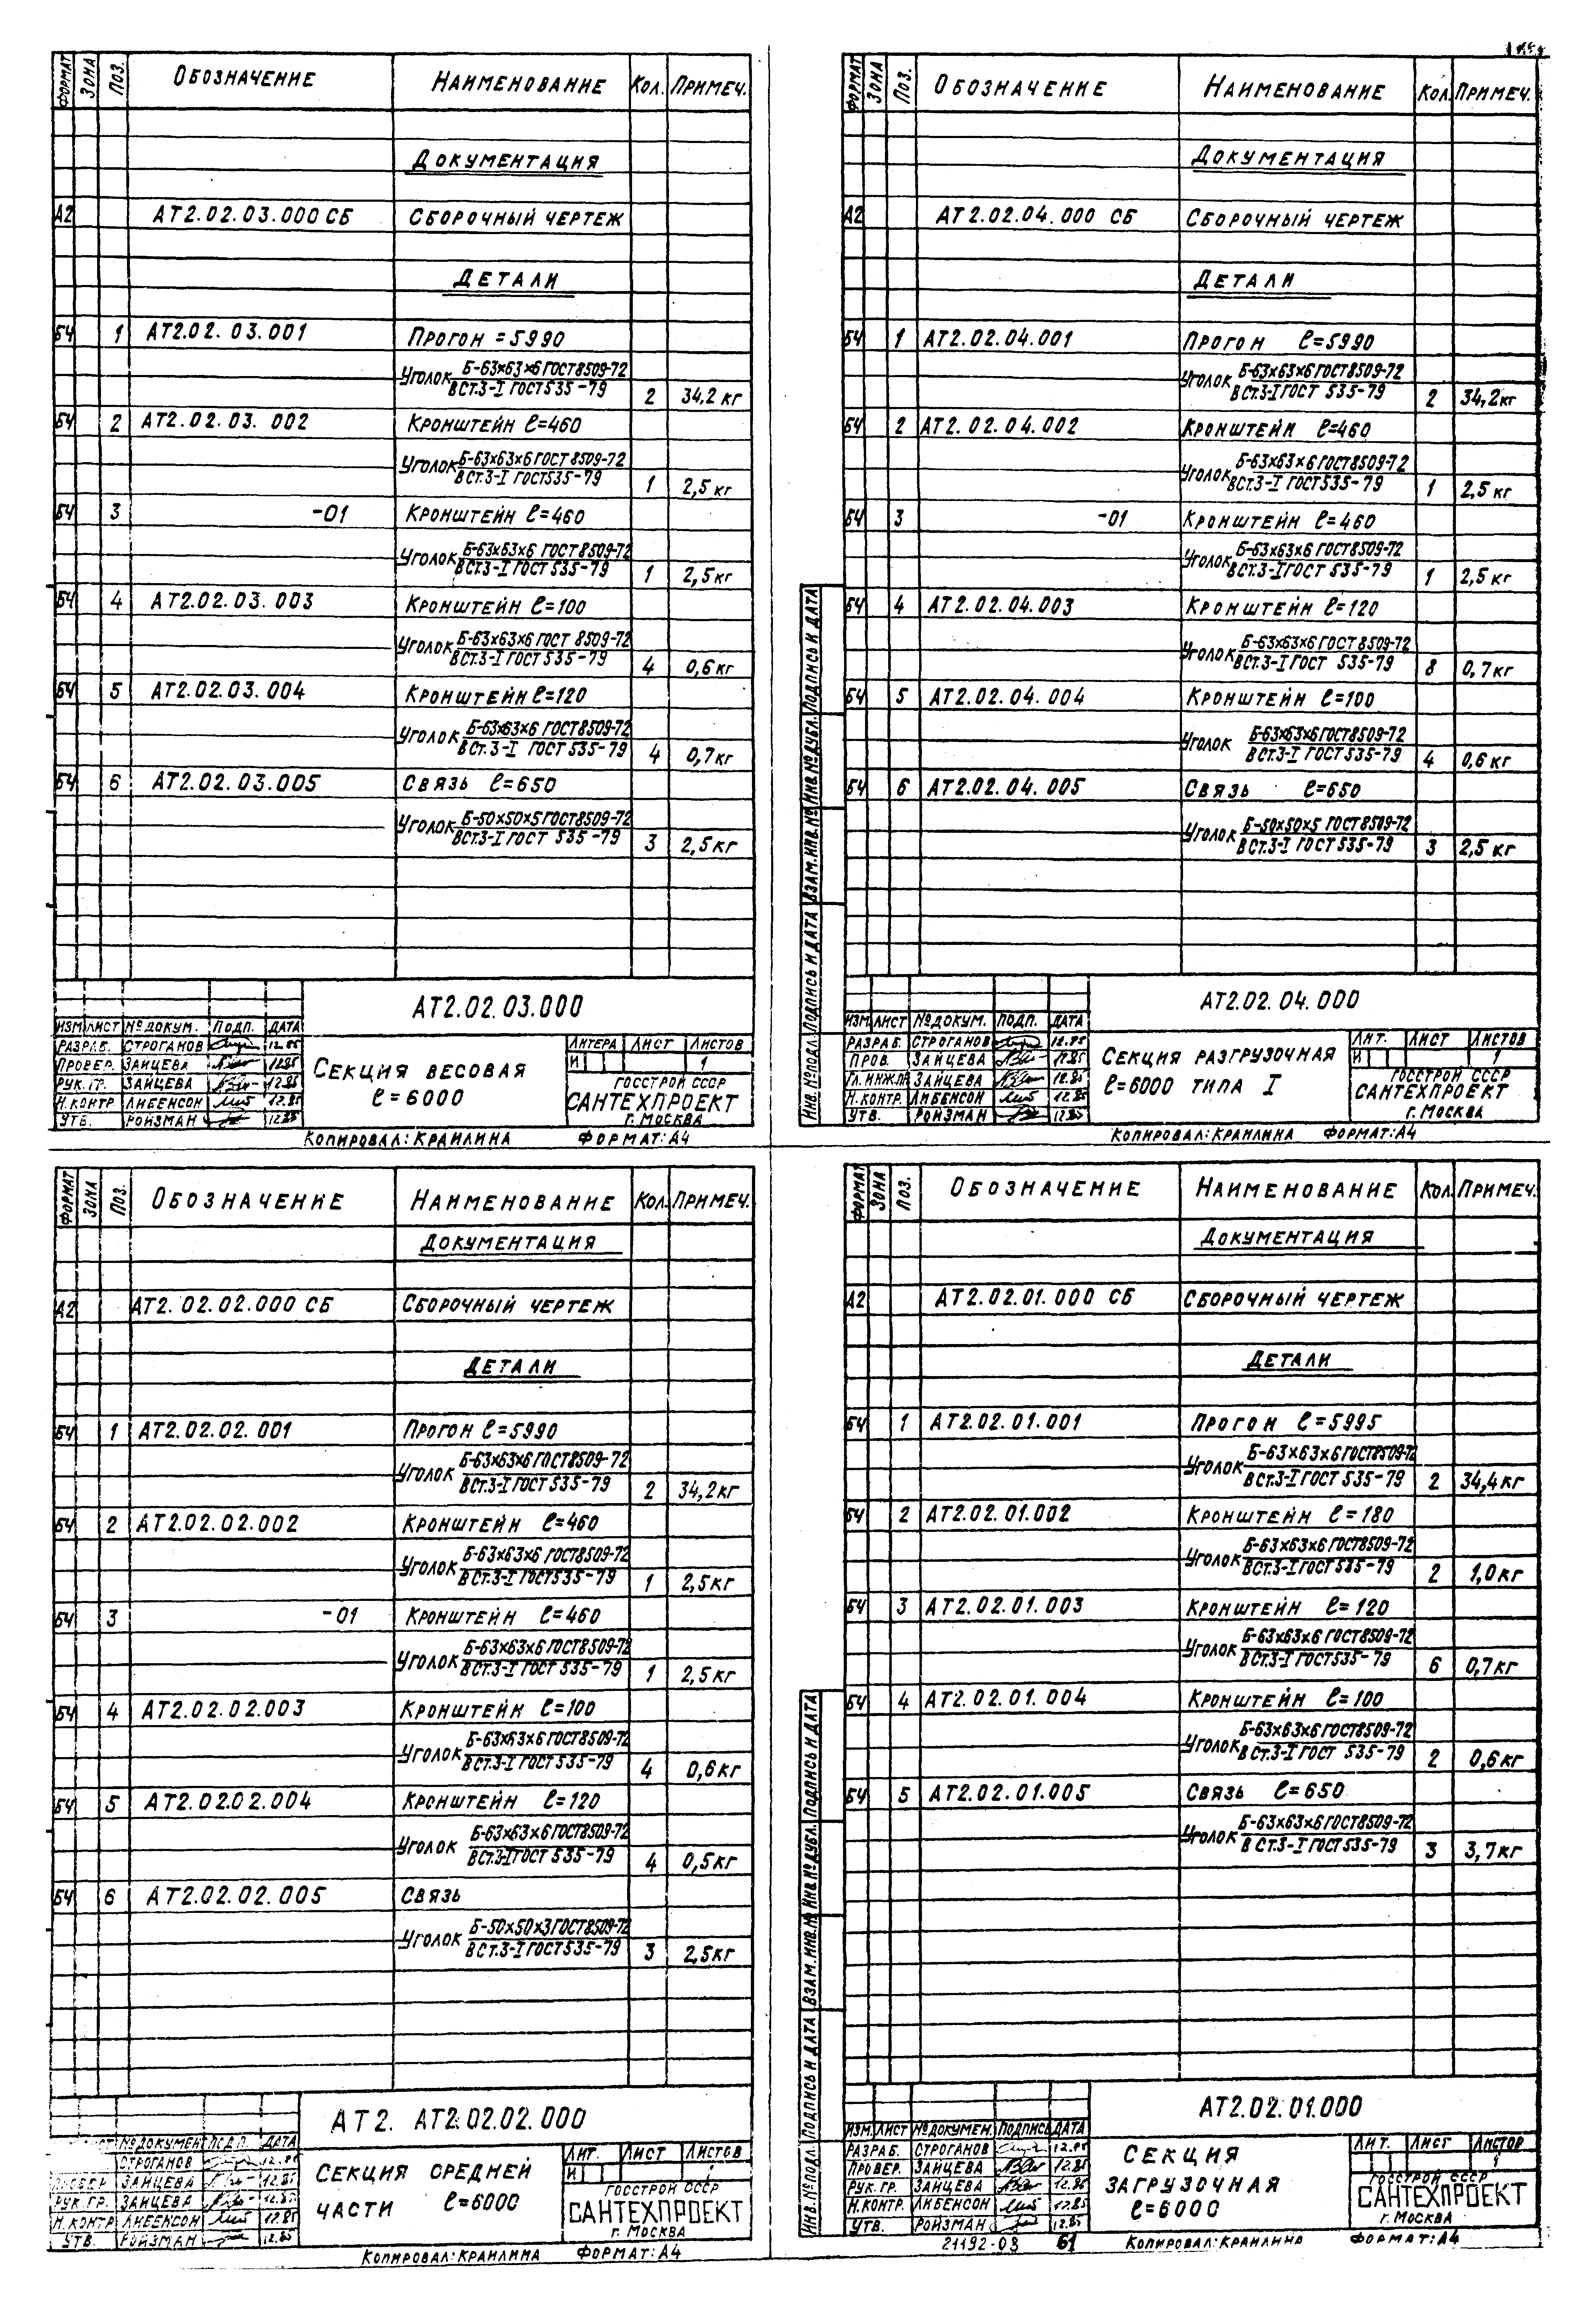 ФОРМАТ ЗОНА ПОЗ. ОБОЗНАЧЕНИЕ НАИМЕНОВАНИЕ КОЛ. ПРИМЕЧ.
ДОКУМЕНТАЦИЯ
А2 АТ2.02.03.000 СБ СБОРОЧНЫЙ ЧЕРТЕЖ
ДЕТАЛИ
БЧ 1 АТ2.02.03.001 ПРОГОН =5990
УГОЛОК Б-63х63х6 ГОСТ 8509-72
ВСТ.3-I ГОСТ 535-79 2 34,2 кг
БЧ 2 АТ2.02.03.002 КРОНШТЕЙН ℓ=460
УГОЛОК Б-63х63х6 ГОСТ 8509-72
ВСТ.3-I ГОСТ 535-79 1 2,5 кг
БЧ 3 -01 КРОНШТЕЙН ℓ=460
УГОЛОК Б-63х63х6 ГОСТ 8509-72
ВСТ.3-I ГОСТ 535-79 1 2,5 кг
БЧ 4 АТ2.02.03.003 КРОНШТЕЙН ℓ=100
УГОЛОК Б-63х63х6 ГОСТ 8509-72
ВСТ.3-I ГОСТ 535-79 4 0,6 кг
БЧ 5 АТ2.02.03.004 КРОНШТЕЙН ℓ=120
УГОЛОК Б-63х63х6 ГОСТ 8509-72
ВСТ.3-I ГОСТ 535-79 4 0,7 кг
БЧ 6 АТ2.02.03.005 СВЯЗЬ ℓ=650
УГОЛОК Б-50х50х5 ГОСТ 8509-72
ВСТ.3-I ГОСТ 535-79 3 2,5 кг
АТ2.02.03.000
ИЗМ ЛИСТ № ДОКУМ. ПОДП. ДАТА
РАЗРАБ. СТРОГАНОВ 12.85
ПРОВЕР. ЗАЙЦЕВА 12.85
РУК. ГР. ЗАЙЦЕВА 12.85
Н.КОНТР ЛИБЕНСОН 12.85
УТВ. РОЙЗМАН 12.85
СЕКЦИЯ ВЕСОВАЯ
ℓ=6000
ЛИТЕРА ЛИСТ ЛИСТОВ
И 1
ГОССТРОЙ СССР
САНТЕХПРОЕКТ
Г. МОСКВА
КОПИРОВАЛ: КРАИЛИНА ФОРМАТ: А4
ФОРМАТ ЗОНА ПОЗ. ОБОЗНАЧЕНИЕ НАИМЕНОВАНИЕ КОЛ. ПРИМЕЧ.
ДОКУМЕНТАЦИЯ
А2 АТ2.02.04.000 СБ СБОРОЧНЫЙ ЧЕРТЕЖ
ДЕТАЛИ
БЧ 1 АТ2.02.04.001 ПРОГОН ℓ=5990
УГОЛОК Б-63х63х6 ГОСТ 8509-72
ВСТ.3-I ГОСТ 535-79 2 34,2 кг
БЧ 2 АТ2.02.04.002 КРОНШТЕЙН ℓ=460
УГОЛОК Б-63х63х6 ГОСТ 8509-72
ВСТ.3-I ГОСТ 535-79 1 2,5 кг
БЧ 3 -01 КРОНШТЕЙН ℓ=460
УГОЛОК Б-63х63х6 ГОСТ 8509-72
ВСТ.3-I ГОСТ 535-79 1 2,5 кг
БЧ 4 АТ2.02.04.003 КРОНШТЕЙН ℓ=120
УГОЛОК Б-63х63х6 ГОСТ 8509-72
ВСТ.3-I ГОСТ 535-79 8 0,7 кг
БЧ 5 АТ2.02.04.004 КРОНШТЕЙН ℓ=100
УГОЛОК Б-63х63х6 ГОСТ 8509-72
ВСТ.3-I ГОСТ 535-79 4 0,6 кг
БЧ 6 АТ2.02.04.005 СВЯЗЬ ℓ=650
УГОЛОК Б-50х50х5 ГОСТ 8509-72
ВСТ.3-I ГОСТ 535-79 3 2,5 кг
ИНВ. № ПОДЛ. ПОДПИСЬ И ДАТА ВЗАМ. ИНВ. № ИНВ. № ДУБЛ. ПОДПИСЬ И ДАТА
АТ2.02.04.000
ИЗМ ЛИСТ № ДОКУМ. ПОДП. ДАТА
РАЗРАБ. СТРОГАНОВ 12.85
ПРОВ. ЗАЙЦЕВА 12.85
ГЛ. ИНЖ.ПР ЗАЙЦЕВА 12.85
Н.КОНТР. ЛИБЕНСОН 12.85
УТВ. РОЙЗМАН 12.85
СЕКЦИЯ РАЗГРУЗОЧНАЯ
ℓ=6000 ТИПА I
ЛИТ. ЛИСТ ЛИСТОВ
И 1
ГОССТРОЙ СССР
САНТЕХПРОЕКТ
Г. МОСКВА
КОПИРОВАЛ: КРАИЛИНА ФОРМАТ: А4
ФОРМАТ ЗОНА ПОЗ. ОБОЗНАЧЕНИЕ НАИМЕНОВАНИЕ КОЛ. ПРИМЕЧ.
ДОКУМЕНТАЦИЯ
А2 АТ2.02.02.000 СБ СБОРОЧНЫЙ ЧЕРТЕЖ
ДЕТАЛИ
БЧ 1 АТ2.02.02.001 ПРОГОН ℓ=5990
УГОЛОК Б-63х63х6 ГОСТ 8509-72
ВСТ.3-I ГОСТ 535-79 2 34,2 кг
БЧ 2 АТ2.02.02.002 КРОНШТЕЙН ℓ=460
УГОЛОК Б-63х63х6 ГОСТ 8509-72
ВСТ.3-I ГОСТ 535-79 1 2,5 кг
БЧ 3 -01 КРОНШТЕЙН ℓ=460
УГОЛОК Б-63х63х6 ГОСТ 8509-72
ВСТ.3-I ГОСТ 535-79 1 2,5 кг
БЧ 4 АТ2.02.02.003 КРОНШТЕЙН ℓ=100
УГОЛОК Б-63х63х6 ГОСТ 8509-72
ВСТ.3-I ГОСТ 535-79 4 0,6 кг
БЧ 5 АТ2.02.02.004 КРОНШТЕЙН ℓ=120
УГОЛОК Б-63х63х6 ГОСТ 8509-72
ВСТ.3-I ГОСТ 535-79 4 0,5 кг
БЧ 6 АТ2.02.02.005 СВЯЗЬ
УГОЛОК Б-50х50х3 ГОСТ 8509-72
ВСТ.3-I ГОСТ 535-79 3 2,5 кг
АТ2. АТ2.02.02.000
№ ДОКУМЕН ПОДП. ДАТА
СТРОГАНОВ 12.85
ЗАЙЦЕВА 12.85
РУК. ГР. ЗАЙЦЕВА 12.85
Н.КОНТР ЛИБЕНСОН 12.85
УТВ. РОЙЗМАН 12.85
СЕКЦИЯ СРЕДНЕЙ
ЧАСТИ ℓ=6000
ЛИТ. ЛИСТ ЛИСТОВ
И 1
ГОССТРОЙ СССР
САНТЕХПРОЕКТ
Г. МОСКВА
КОПИРОВАЛ: КРАИЛИНА ФОРМАТ: А4
ФОРМАТ ЗОНА ПОЗ. ОБОЗНАЧЕНИЕ НАИМЕНОВАНИЕ КОЛ. ПРИМЕЧ.
ДОКУМЕНТАЦИЯ
А2 АТ2.02.01.000 СБ СБОРОЧНЫЙ ЧЕРТЕЖ
ДЕТАЛИ
БЧ 1 АТ2.02.01.001 ПРОГОН ℓ=5995
УГОЛОК Б-63х63х6 ГОСТ 8509-72
ВСТ.3-I ГОСТ 535-79 2 34,4 кг
БЧ 2 АТ2.02.01.002 КРОНШТЕЙН ℓ=180
УГОЛОК Б-63х63х6 ГОСТ 8509-72
ВСТ.3-I ГОСТ 535-79 2 1,0 кг
БЧ 3 АТ2.02.01.003 КРОНШТЕЙН ℓ=120
УГОЛОК Б-63х63х6 ГОСТ 8509-72
ВСТ.3-I ГОСТ 535-79 6 0,7 кг
БЧ 4 АТ2.02.01.004 КРОНШТЕЙН ℓ=100
УГОЛОК Б-63х63х6 ГОСТ 8509-72
ВСТ.3-I ГОСТ 535-79 2 0,6 кг
БЧ 5 АТ2.02.01.005 СВЯЗЬ ℓ=650
УГОЛОК Б-63х63х6 ГОСТ 8509-72
ВСТ.3-I ГОСТ 535-79 3 3,7 кг
ИНВ. № ПОДЛ. ПОДПИСЬ И ДАТА ВЗАМ. ИНВ. № ИНВ. № ДУБЛ. ПОДПИСЬ И ДАТА
АТ2.02.01.000
ИЗМ. ЛИСТ № ДОКУМЕН. ПОДПИСЬ ДАТА
РАЗРАБ. СТРОГАНОВ 12.85
ПРОВЕР. ЗАЙЦЕВА 12.85
РУК. ГР. ЗАЙЦЕВА 12.85
Н.КОНТР. ЛИБЕНСОН 12.85
УТВ. РОЙЗМАН 12.85
СЕКЦИЯ
ЗАГРУЗОЧНАЯ
ℓ=6000
ЛИТ. ЛИСТ ЛИСТОВ
И 1
ГОССТРОЙ СССР
САНТЕХПРОЕКТ
Г. МОСКВА
21192-03 61 КОПИРОВАЛ: КРАИЛИНА ФОРМАТ: А4